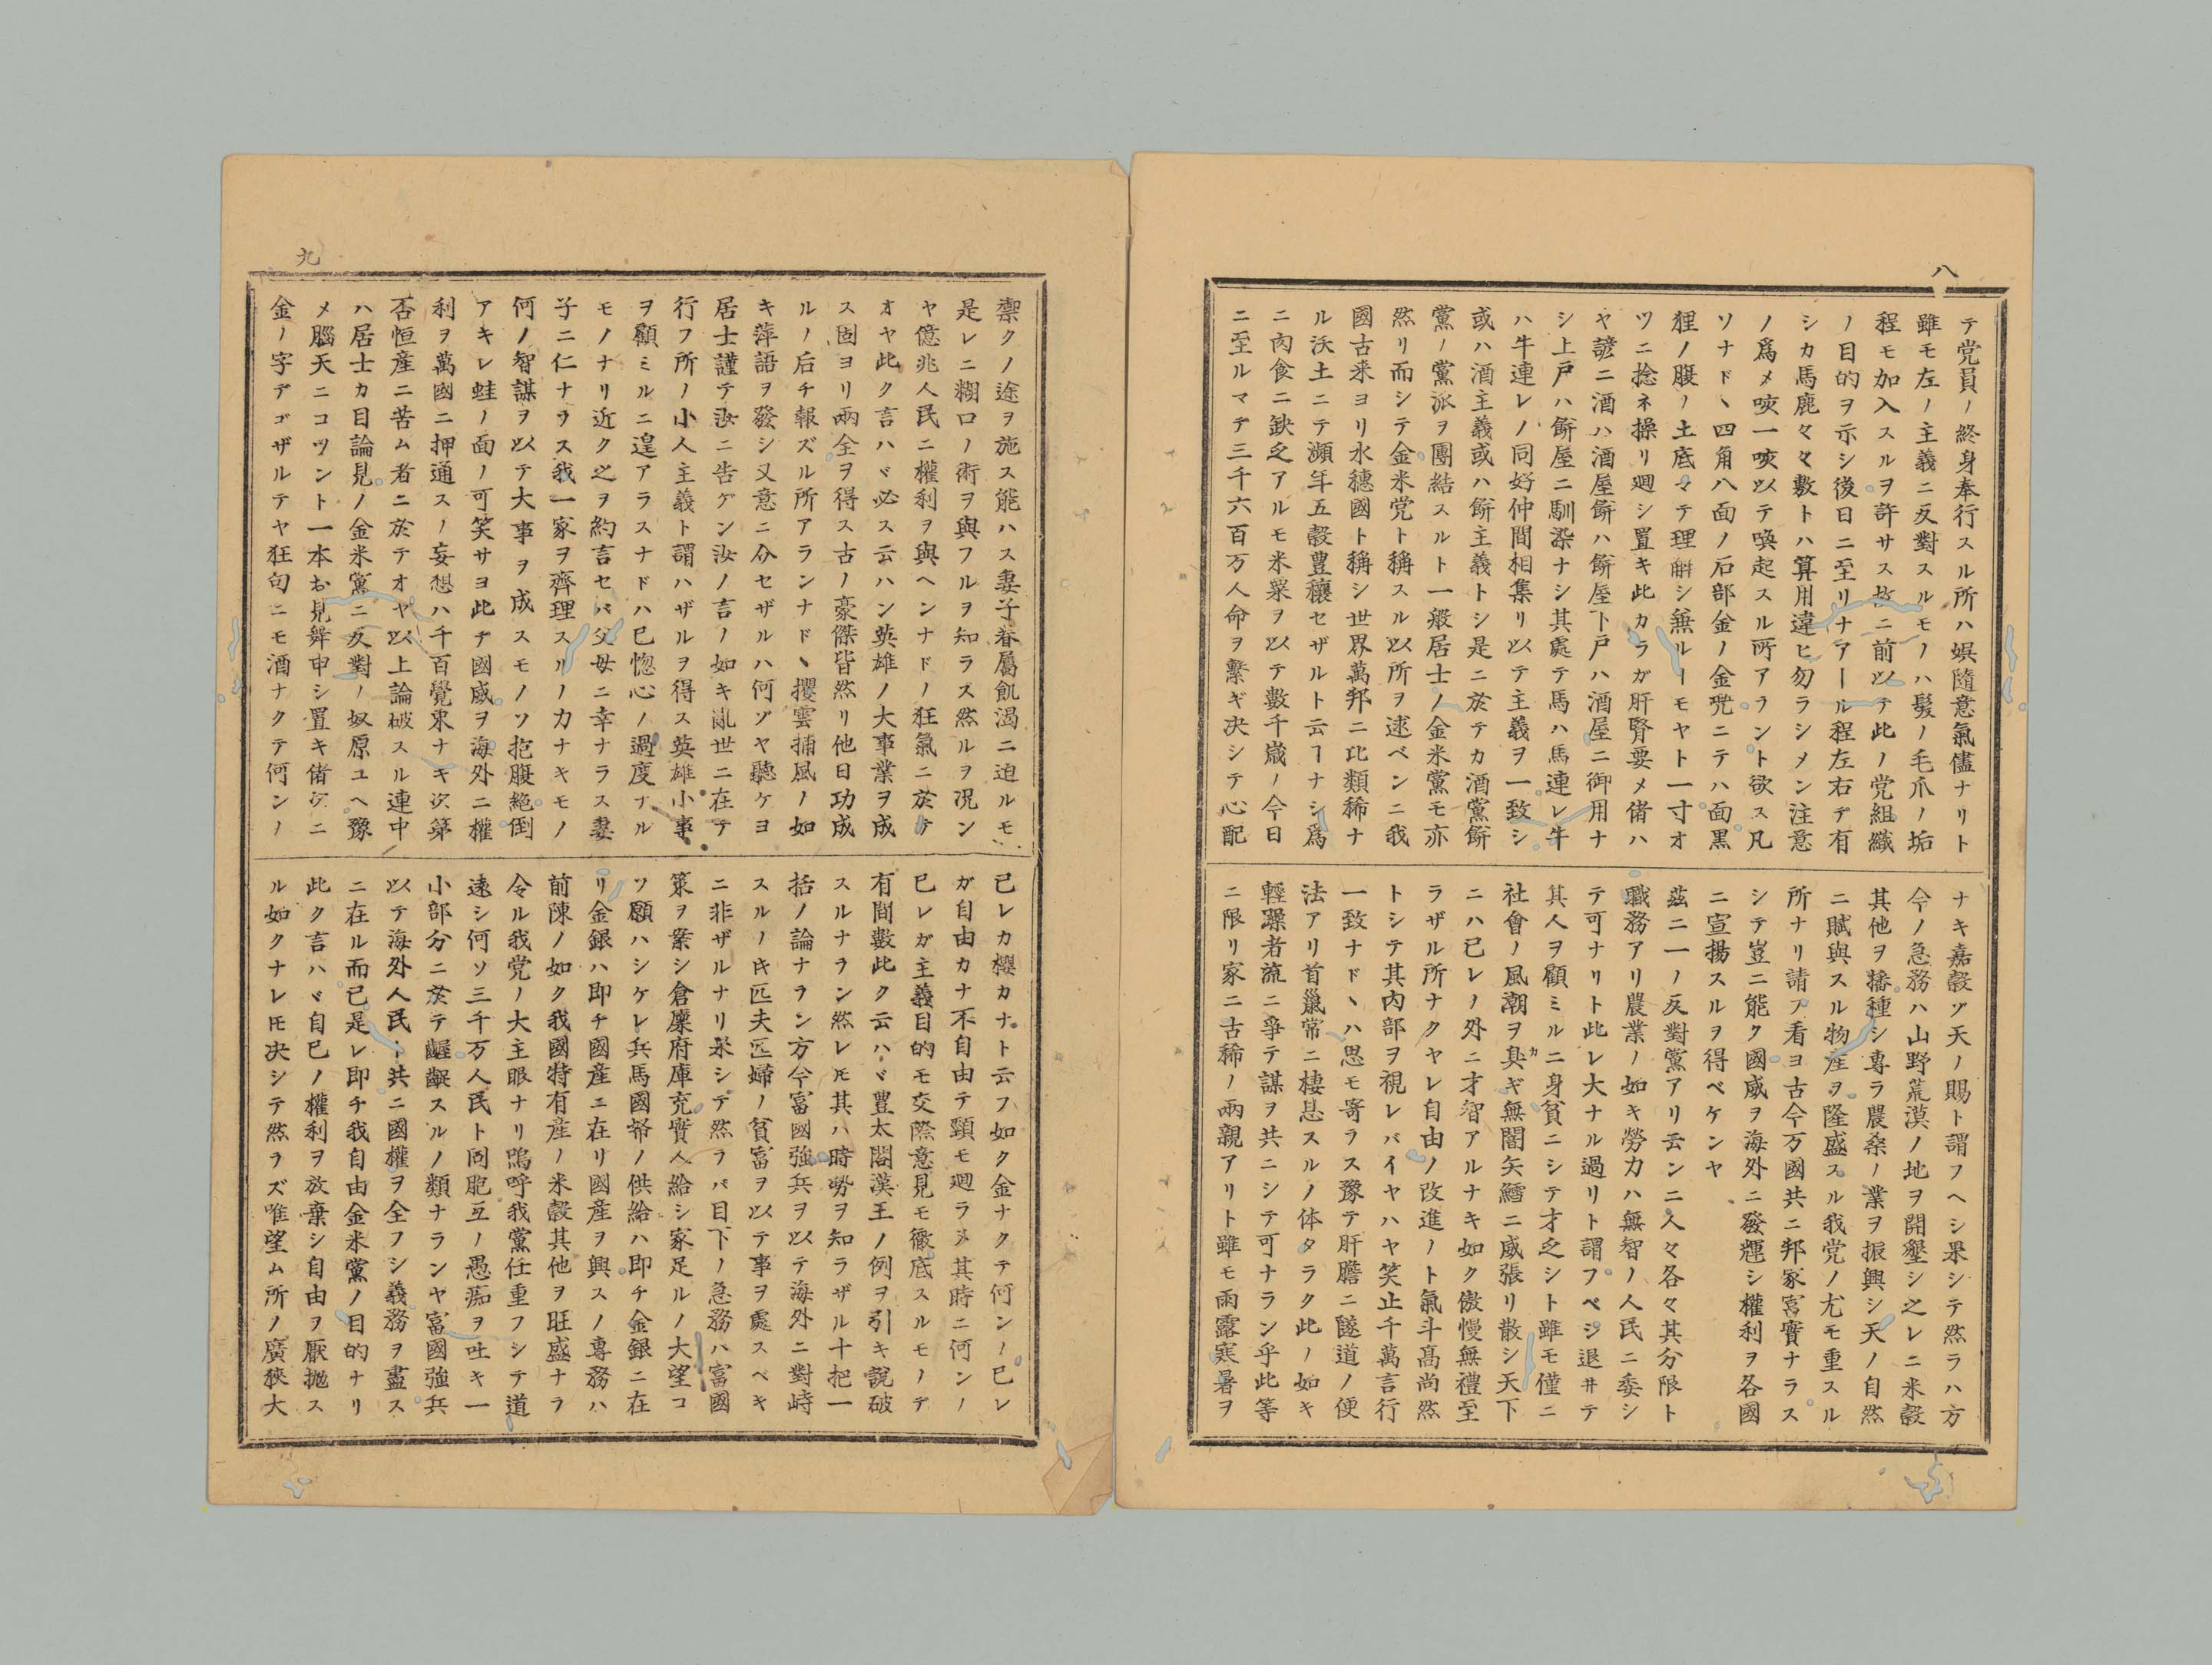 八
テ党員ノ終身奉行スル所ハ娯隨意氣儘ナリト
雖モ左ノ主義ニ反對スルモノハ髮ノ毛爪ノ垢
程モ加入スルヲ許サス故ニ前以テ此ノ党組織
ノ目的ヲ示シ後日ニ至リナアール程左右デ有
シカ馬鹿々々敷トハ算用違ヒ勿ラシメン注意
ノ爲メ咳一咳以テ喚起スル所アラント欲ス凡
ソナドヽ四角八面ノ石部金ノ金兜ニテハ面黒
狸ノ腹ノ土底マテ理解シ無ルーモヤト一寸オ
ツニ捻ネ操リ廻シ置キ此カラガ肝腎要メ偖ハ
ヤ諺ニ酒ハ酒屋餅ハ餅屋下戸ハ酒屋ニ御用ナ
シ上戸ハ餅屋ニ馴染ナシ其處テ馬ハ馬連レ牛
ハ牛連レノ同好仲間相集リ以テ主義ヲ一致シ
或ハ酒主義或ハ餅主義トシ是ニ於テカ酒黨餅
黨ノ黨派ヲ團結スルト一般居士ノ金米黨モ亦
然リ而シテ金米党ト稱スル以所ヲ逑ベンニ我
國古来ヨリ水穗國ト稱シ世界萬邦ニ比類稀ナ
ル沃土ニテ瀕年五穀豊穰セザルト云ヿナシ爲
ニ肉食ニ缺乏アルモ米粟ヲ以テ數千歳ノ今日
ニ至ルマデ三千六百万人命ヲ繋ギ决シテ心配
ナキ嘉穀ヅ天ノ賜ト謂フヘシ果シテ然ラハ方
今ノ急務ハ山野荒漠ノ地ヲ開墾シ之レニ米穀
其他ヲ播種シ專ラ農桑ノ業ヲ振興シ天ノ自然
ニ賦與スル物産ヲ隆盛スル我党ノ尤モ重スル
所ナリ請フ看ヨ古今万國共ニ邦家富實ナラス
シテ豈ニ能ク國威ヲ海外ニ發輝シ權利ヲ各國
ニ宣揚スルヲ得ベケンヤ
茲ニ一ノ反對黨アリ云ンニ人々各々其分限ト
職務アリ農業ノ如キ勞力ハ無智ノ人民ニ委シ
テ可ナリト此レ大ナル過リト謂フベシ退ヰテ
其人ヲ顧ミルニ身貧ニシテ才乏シト雖モ僅ニ
社會ノ風潮ヲ臭カギ無闇矢鱈ニ威張リ散シ天下
ニハ已レノ外ニ才智アルナキ如ク傲慢無禮至
ラザル所ナクヤレ自由ノ改進ノト氣斗髙尚然
トシテ其内部ヲ視レバイヤハヤ笑止千萬言行
一致ナドヽハ思モ寄ラス豫テ肝膽ニ隧道ノ便
法アリ首巤常ニ棲息スルノ体タラク此ノ如キ
輕躁者流ニ爭テ謀ヲ共ニシテ可ナラン乎此等
ニ限リ家ニ古稀ノ兩親アリト雖モ雨露寒暑ヲ
九
禦クノ途ヲ施ス能ハス妻子眷屬飢渇ニ迫ルモ
是レニ糊口ノ術ヲ與フルヲ知ラス然ルヲ况ン
ヤ億兆人民ニ權利ヲ與ヘンナドノ狂氣ニ於テ
オヤ此ク言ハヾ必ス云ハン英雄ノ大事業ヲ成
ス固ヨリ兩全ヲ得ス古ノ豪傑皆然リ他日功成
ルノ后チ報ズル所アランナドヽ攫雲捕風ノ如
キ萍語ヲ發シ又意ニ介セザルハ何ヅヤ聽ケヨ
居士謹テ汝ニ告ゲン汝ノ言ノ如キ亂世ニ在テ
行フ所ノ小人主義ト謂ハザルヲ得ス英雄小事
ヲ顧ミルニ遑アラスナドハ已惚心ノ過度ナル
モノナリ近ク之ヲ約言セバ父母ニ幸ナラス妻
子ニ仁ナラス我一家ヲ齊理スルノ力ナキモノ
何ノ智謀ヲ以テ大事ヲ成スモノソ抱腹絶倒
アキレ蛙ノ面ノ可笑サヨ此デ國威ヲ海外ニ權
利ヲ萬國ニ押通スノ妄想ハ千百覺束ナキ次第
否恒産ニ苦ム者ニ於テオヤ以上論破スル連中
ハ居士カ目論見ノ金米黨ニ反對ノ奴原ユヘ豫
メ腦天ニコツント一本お見舞申シ置キ偖次ニ
金ノ字デゴザルテヤ狂句ニモ酒ナクテ何ンノ
已レカ櫻カナト云フ如ク金ナクテ何ンノ已レ
ガ自由カナ不自由テ頸モ廻ラヌ其時ニ何ンノ
已レガ主義目的モ交際意見モ徹底スルモノデ
有間數此ク云ハヾ豊太閤漢王ノ例ヲ引キ說破
スルナラン然レ𪜈其ハ時勢ヲ知ラザル十把一
括ノ論ナラン方今富國強兵ヲ以テ海外ニ對峙
スルノ𪜈匹夫匹婦ノ貧富ヲ以テ事ヲ處スベキ
ニ非ザルナリ果シテ然ラバ目下ノ急務ハ富國
策ヲ案シ倉廩府庫充實人給シ家足ルノ大望コ
ソ願ハシケレ兵馬國帑ノ供給ハ即チ金銀ニ在
リ金銀ハ即チ國産エ在リ國産ヲ興スノ專務ハ
前陳ノ如ク我國特有産ノ米穀其他ヲ旺盛ナラ
令ル我党ノ大主眼ナリ嗚呼我黨任重フシテ道
遠シ何ソ三千万人民ト同胞互ノ愚痴ヲ吐キ一
小部分ニ於テ齷齪スルノ類ナランヤ富國強兵
以テ海外人民ト共ニ國權ヲ全フシ義務ヲ盡ス
ニ在ル而已是レ即チ我自由金米黨ノ目的ナリ
此ク言ハヾ自已ノ權利ヲ放棄シ自由ヲ厭抛ス
ル如クナレ𪜈决シテ然ラズ唯望ム所ノ廣狹大